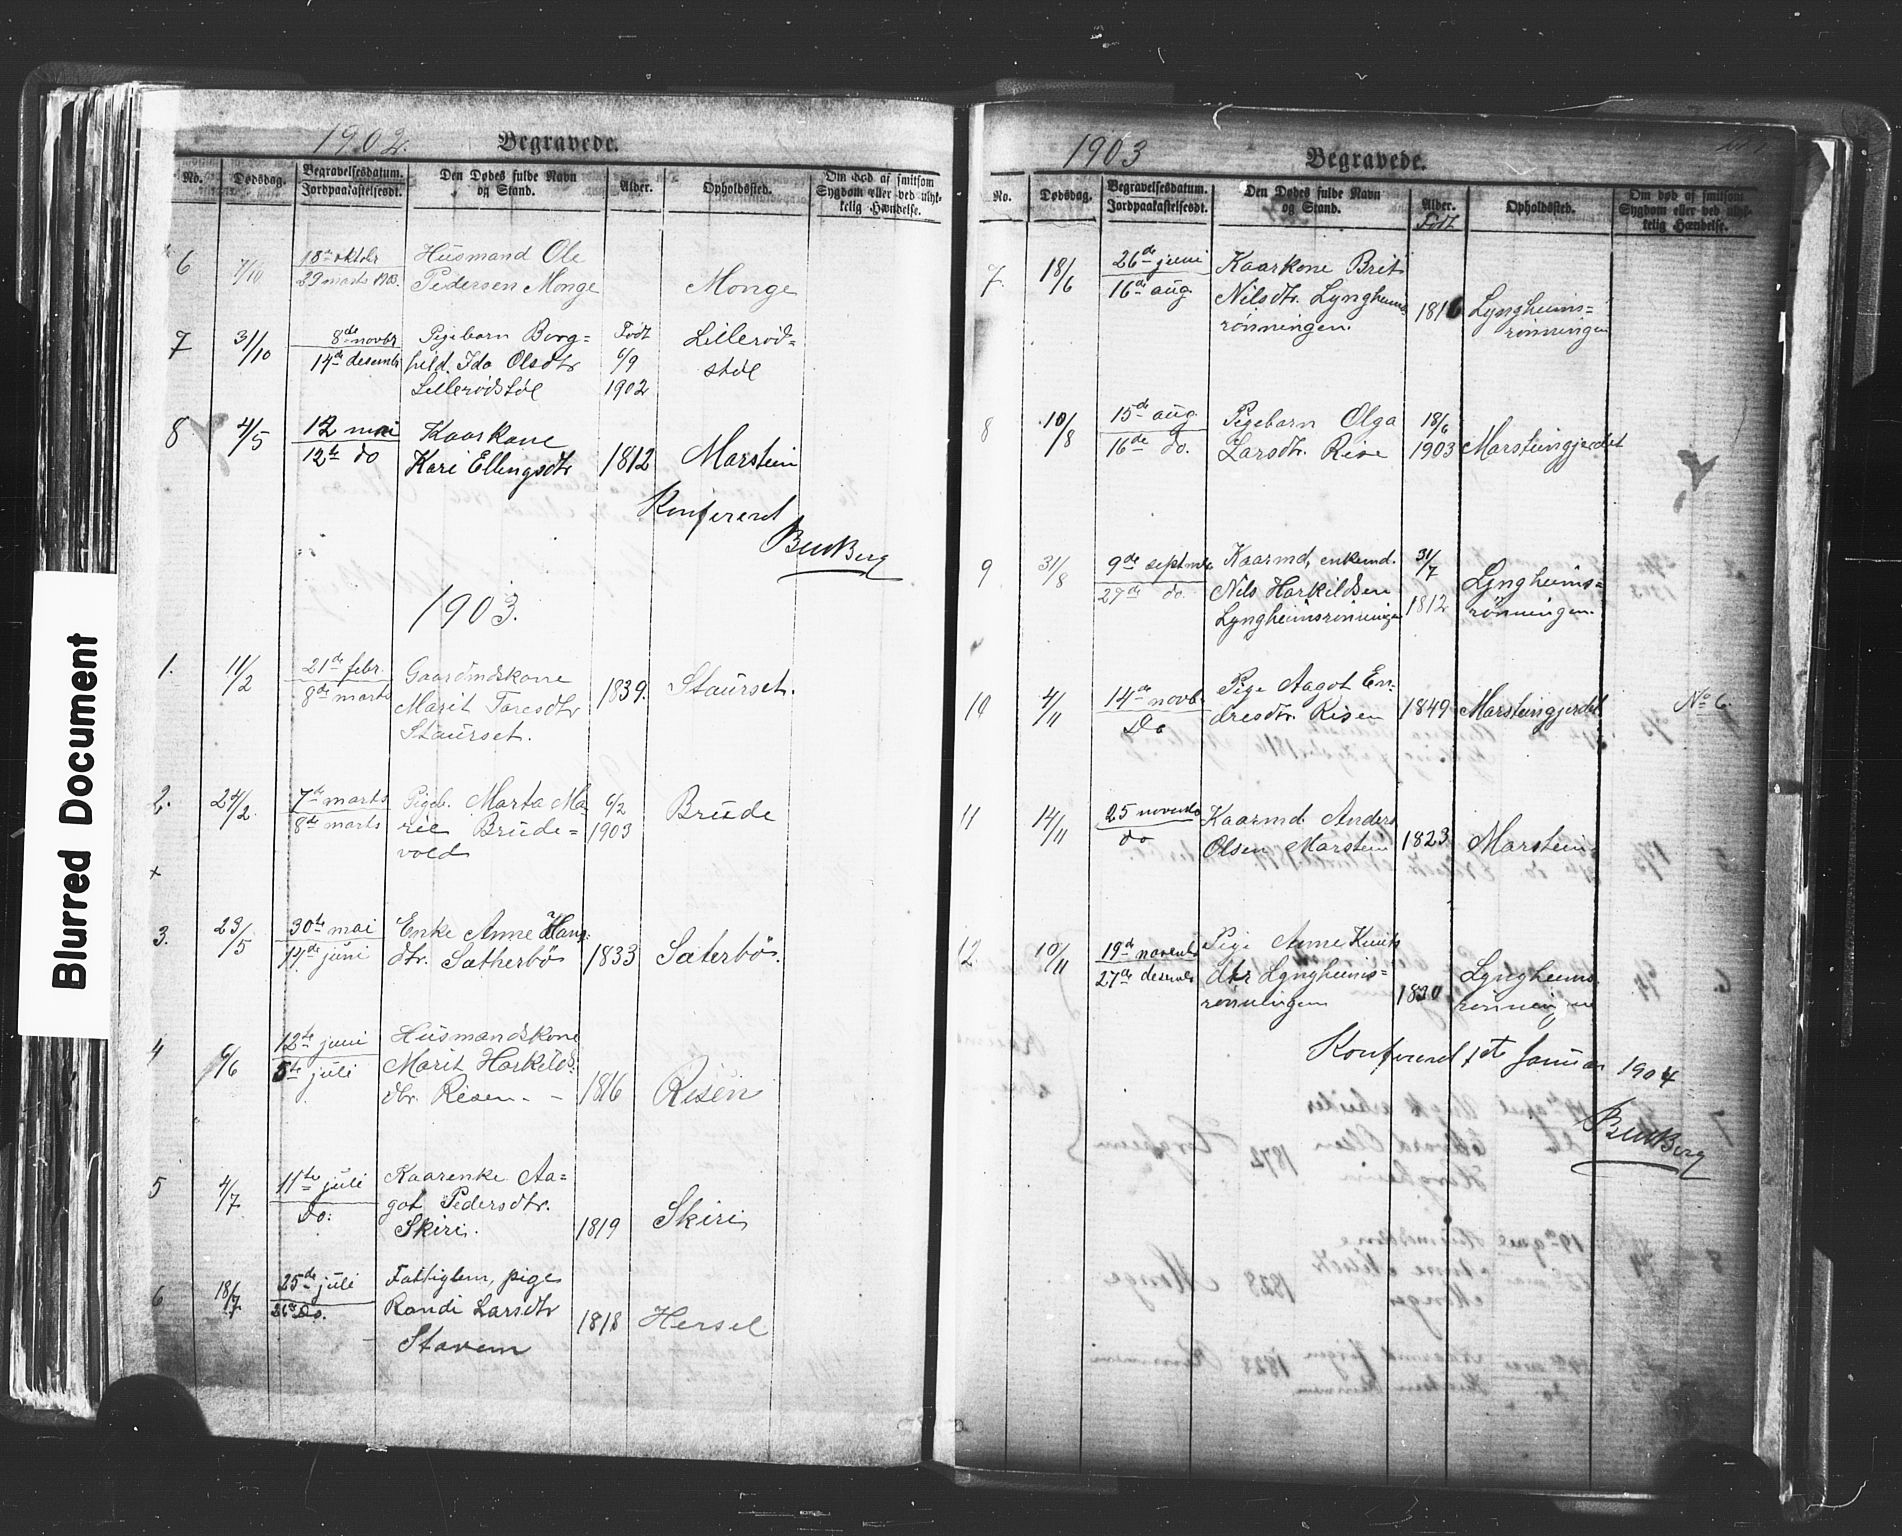 Blurred Document
1902. Begravede.
No. Dødsdag. Begravelsesdatum. Jordpaakastelsesdt. Den Dødes fulde Navn og Stand. Alder. Opholdssted. Om død af smitsom Sygdom eller ved ulyk-kelig Hændelse.
6 7/10 18de oktbr Husmand Ole
29 marts 1903. Pedersen Monge Monge
7 31/10 8de novbr Pigebarn Borg= Født Lillerød=
14de desembr hild Ida Olsdtr 6/9 støl
Lillerødstøl 1902
8 4/5 12 mai Kaarkone
12te do Kari Ellingsdtr 1812 Marstein
Konfereret
1903.
1. 11/2 21de febr. Gaardmdskone
8de marts Marit Toresdtr 1839. Staurset.
Staurset.
2. 24/2. 7de marts Pigeb. Marta Ma 6/2 Brude
8de marts rie Brude= 1903
vold
+
3. 23/5 30te mai Enke Anne Hans
14de juni dtr. Sætherbø 1833 Sæterbø.
4 6/6 12te juni Husmandskone
5te juli Marit Harkilds
dtr. Risen. - 1816 Risen
5 4/7 11te juli Kaarenke Aa=
Do. got Pedersdtr.
Skiri. 1819 Skiri
6 18/7 25de juli Fattiglem, pige
26de Do. Randi Larsdtr 1818 Hersel
Stavem
1903 Begravede.
No. Dødsdag. Begravelsesdatum. Jordpaakastelsesdt. Den Dødes fulde Navn og Stand. Alder. Født Opholdssted. Om død af smitsom Sygdom eller ved ulyk-kelig Hændelse.
7. 18/6 26de juni Kaarkone Brit
16de aug. Nilsdtr. Lyngheims 1816 Lyngheims=
rønningen. rønningen
8 10/8 15de aug Pigebarn Olga 18/6
16de do. Larsdtr. Rise 1903 Marsteingjerdet
9 31/8 9de septmbr Kaarmd, enkemd. 31/7
27de do. Nils Harkildsen 1812 Lyngheims=
Lyngheimsrønningen rønningen.
10 4/11 14de novb. Pige Aagot En-
Do dresdtr. Risen 1849 Marsteingjerdet No 6.
11 14/11 25 novembr Kaarmd. Anders
do Olsen Marstein 1823 Marstein
12 10/11 19de novembr Pige Anne Knuts
27de desembr dtr Lyngheims= 1830 Lyngheims
rønningen rønningen
Konfereret 1ste Januar 1904